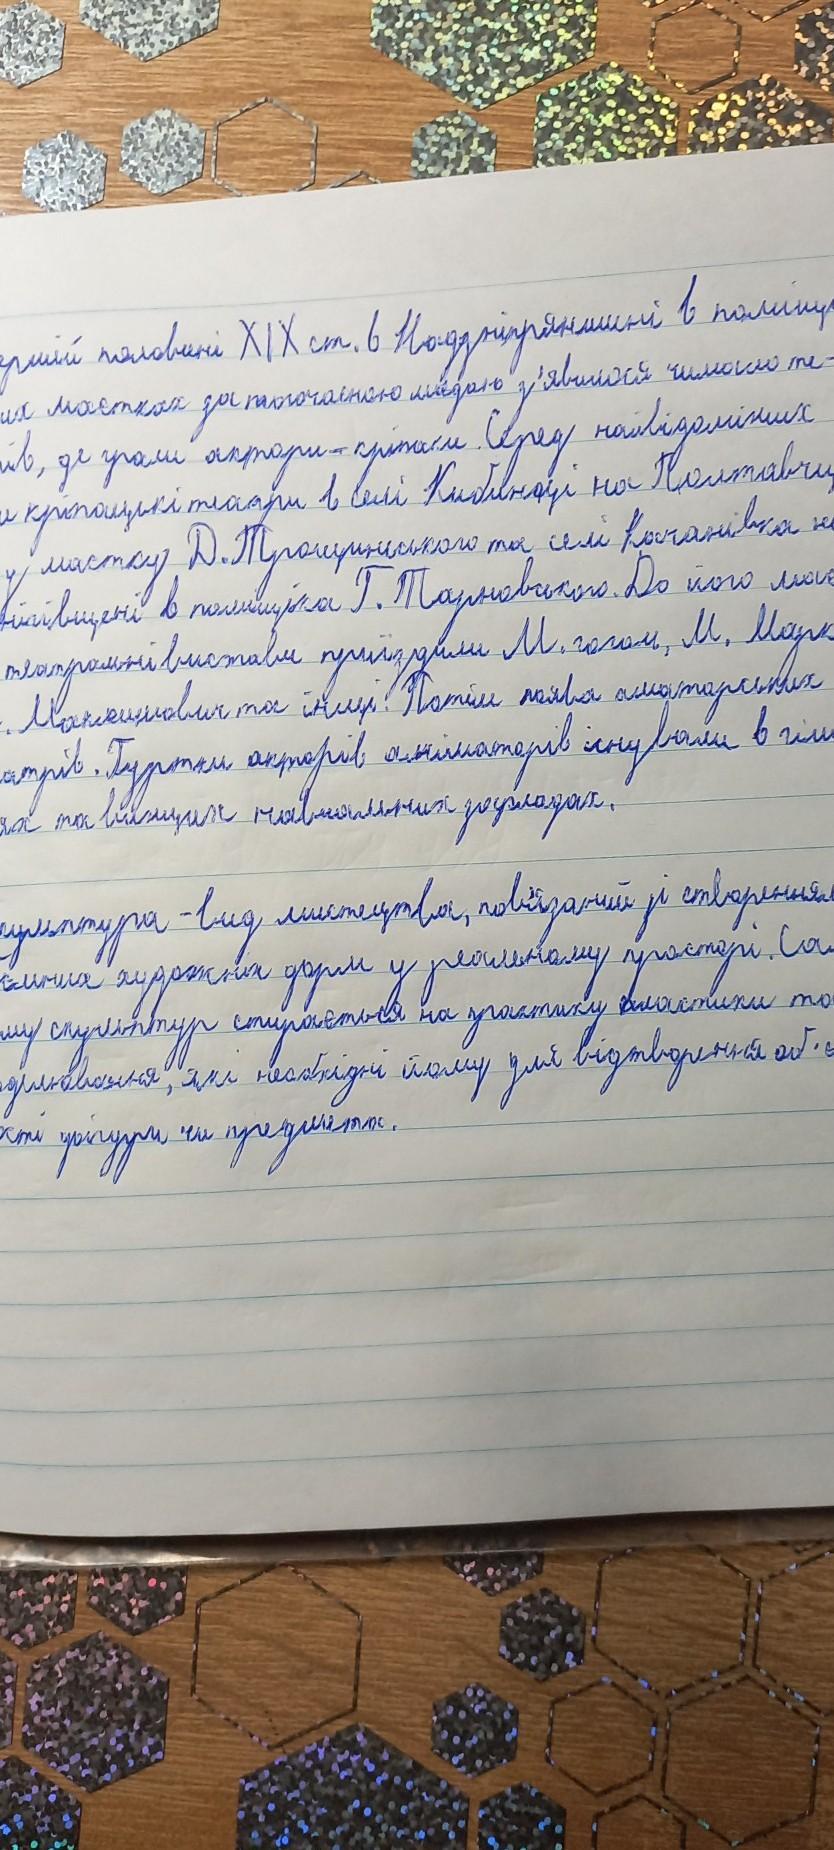 ершій половині XIX ст. в Наддніпрянщині в поміщи
их маєтках за тогочасною модою з'явилося чимало те-
рів, де грали актори-кріпаки. Серед найвідоміших
и кріпацькі театри в селі Кибинці на Полтавчи
у маєтку Д. Трощинського та селі Качанівка на
нігівщені в поміщика Г. Тарновського. До його має
театральні вистави приїздили М. гоголь, М. Марк
. Максимович та інші. Потім поява аматорських
атрів. Гуртки акторів аніматорів існували в гімн
ях та вищих навчальних закладах.
кульптура - вид мистецтва, пов'язаний зі створенням
ємних художніх форм у реальному просторі. Сам
му скульптур спирається на практику пластики та
оделювання, які необхідні йому для відтворення об'є
ості фігури чи предмета.